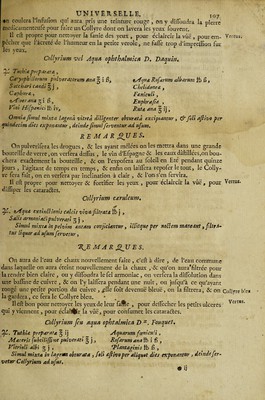 UNIVERSELLE. 107
on coulera l'infusion qui aura pris une teinture rouge, on y dissoudra la pierre
medicamenteuse pour faire un Collyre dont on lavera les yeux souvent.
Il est propre pour nettoyer la sanie des yeux, pour éclaircir la vûë, pour em- Vertus.
pêcher que l'âcreté de l'humeur en la petite verole, ne fasse trop d'impression sur
les yeux.
Collyrium vel Aqua ophthalmica D. Daquin.
℞. Tuthiæ preparatæ,
Caryophillorum pulveratorum ana ℥ i ß,
Sacchari candi ℥ j,
Caphuræ,
Aloes ana ʒ iß,
Vini Hispanici ℔ iv,
Aquæ Rosarum albarum ℔ ß,
Chelidoniæ,
Fœniculi,
Euphrasiæ,
Rutæ ana ℥ iij,
Omnia simul mixta lagenâ vitreâ diligenter obturatâ excipiantur, & soli æstivo per
quindecim dies exponantur, deinde simul serventur ad usum.
REMARQUES.
On pulverisera les drogues, & les ayant mêlées on les mettra dans une grande
bouteille de verre, on versera dessus, le vin d'Espagne & les eaux distillées, on bou-
chera exactement la bouteille, & on l'exposera au soleil en Eté pendant quinze
jours, l'agitant de temps en temps, & enfin on laissera reposer le tout, le Colly-
re sera fait, on en versera par inclination la claire, & l'on s'en servira.
Il est propre pour nettoyer & fortifier les yeux, pour éclaircir la vûë, pour Vertus.
dissiper les cataractes.
Collyrium cæruleum.
℞. Aquæ extinctionis calcis vivæ filtratæ ℔ j,
Salis armoniaci pulverati ʒj,
Simul mixta in pelvim æneam conjiciantur, illicque per noctem maneant, filtra-
tur liquor ad usum servetur.
REMARQUES.
On aura de l'eau de chaux nouvellement faite, c'est à dire, de l'eau commune
dans laquelle on aura éteint nouvellement de la chaux, & qu'on aura filtrée pour
la rendre bien claire, on y dissoudra le sel armoniac, on versera la dissolution dans
une bassine de cuivre, & on l'y laissera pendant une nuit, ou jusqu'à ce qu'ayant
rongé une petite portion du cuivre, elle soit devenuë bleuë, on la filtrera, & on Collyre bleu
la gardera, ce sera le Collyre bleu.
Il est bon pour nettoyer les yeux de leur sanie, pour dessecher les petits ulceres Vertus.
qui y viennent, pour éclaircir la vûë, pour consumer les cataractes.
Collyrium seu aqua ophtalmica D.æ. Fouquet.
℞. Tuthiæ preparatæ ℥ ij
Maceris subtilissime pulverati ℥ j,
Vitrioli albi ʒ j,
Aquarum fœniculi,
Rosarum ana ℔ i ß,
Plantaginis ℔ ß,
Simul mixta in lagena obturata, soli æstivo per aliquot dies exponantur, deinde ser-
vetur Collyrium ad usus.